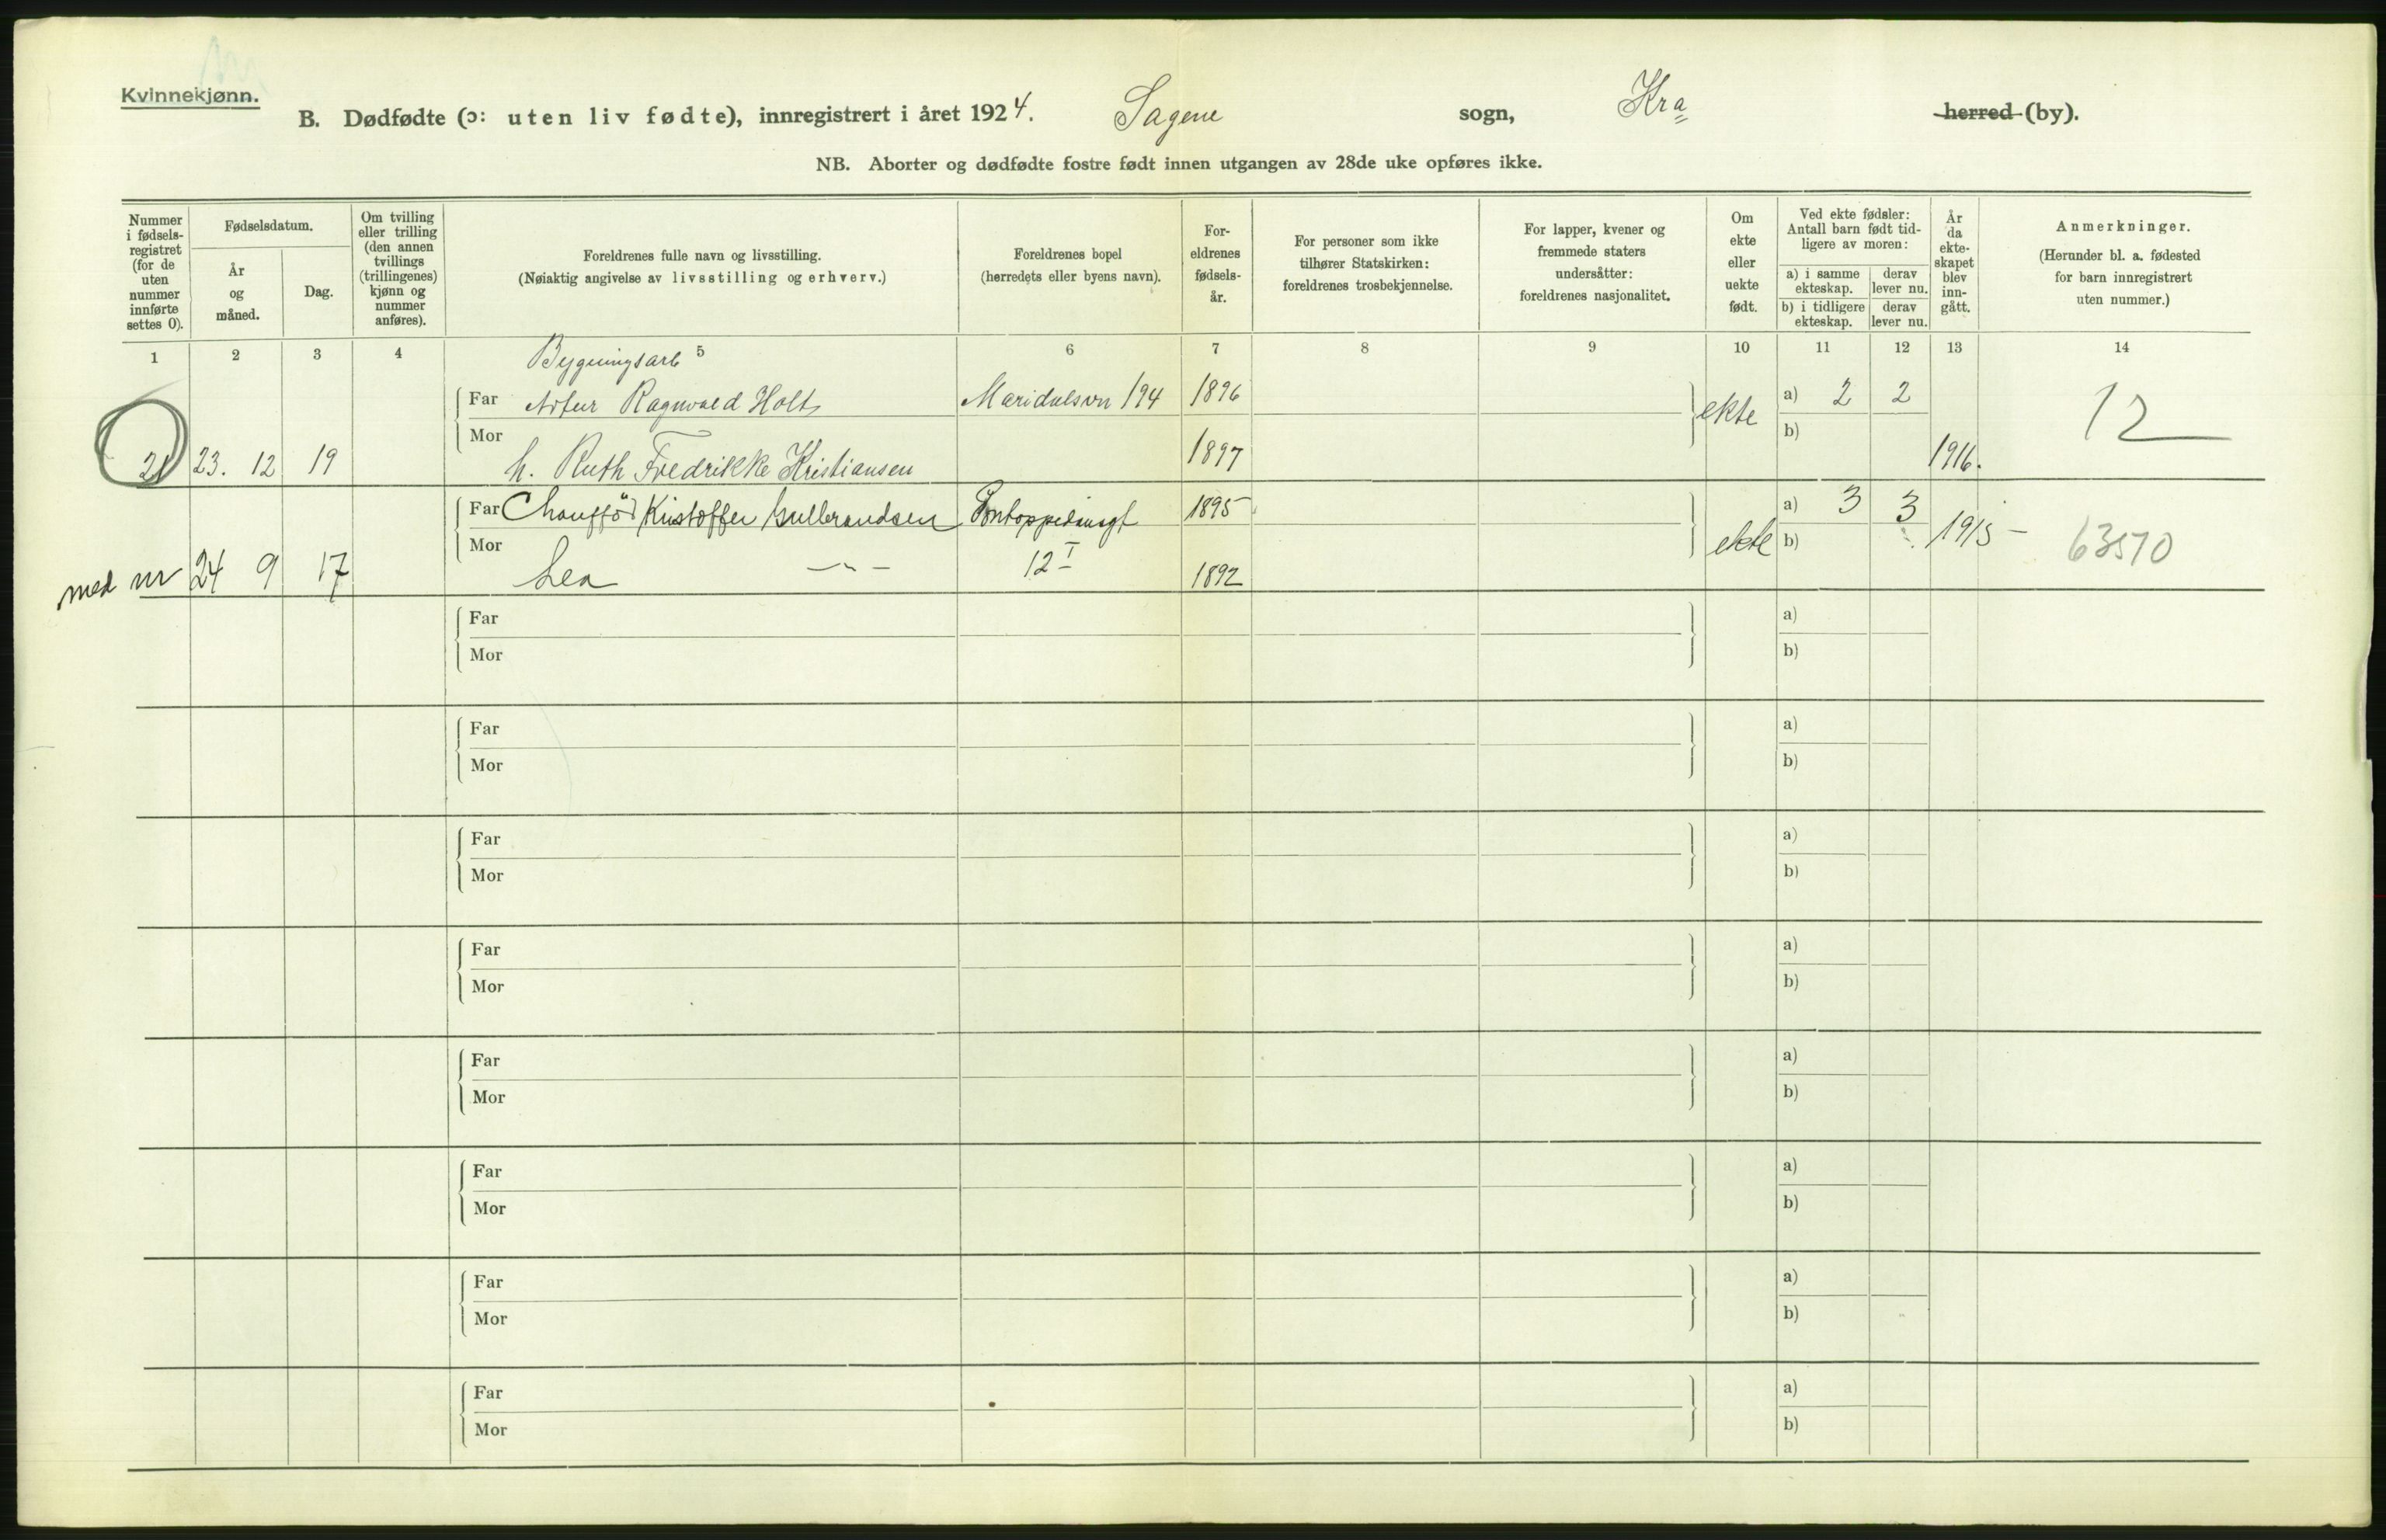 Kvinnekjønn.
B. Dødfødte (ɔ: uten liv fødte), innregistrert i året 1924. Sagene sogn, Kra herred (by).
NB. Aborter og dødfødte fostre født innen utgangen av 28de uke opføres ikke.
Nummer i fødsels-registret (for de uten nummer innførte settes 0).
Fødselsdatum.
År og måned.
Dag.
Om tvilling eller trilling (den annen tvillings (trillingenes) kjønn og nummer anføres).
Foreldrenes fulle navn og livsstilling.
(Nøiaktig angivelse av livsstilling og erhverv.)
Foreldrenes bopel
(herredets eller byens navn).
For-eldrenes fødsels-år.
For personer som ikke tilhører Statskirken: foreldrenes trosbekjennelse.
For lapper, kvener og fremmede staters undersåtter: foreldrenes nasjonalitet.
Om ekte eller uekte født.
Ved ekte fødsler: Antall barn født tid-ligere av moren:
a) i samme ekteskap.
derav lever nu.
b) i tidligere ekteskap.
derav lever nu.
År da ekte-skapet blev inn-gått.
Anmerkninger.
(Herunder bl. a. fødested for barn innregistrert uten nummer.)
1 2 3 4 5 6 7 8 9 10 11 12 13 14
Bygningsarb
Far Artur Ragnvald Holt Maridalsvn 194 1896 ekte a) 2 2 12
Mor b)
21 23. 12 19 h. Ruth Fredrikke Kristiansen 1897 1916.
Far Chauffør Kristoffer Gulbrandsen 1895 a) 3 3 1915
Mor ekte b) 63570
med nr 24 9 17 Lea 12 I 1892
Far a)
Mor b)
Far a)
Mor b)
Far a)
Mor b)
Far a)
Mor b)
Far a)
Mor b)
Far a)
Mor b)
Far a)
Mor b)
Far a)
Mor b)